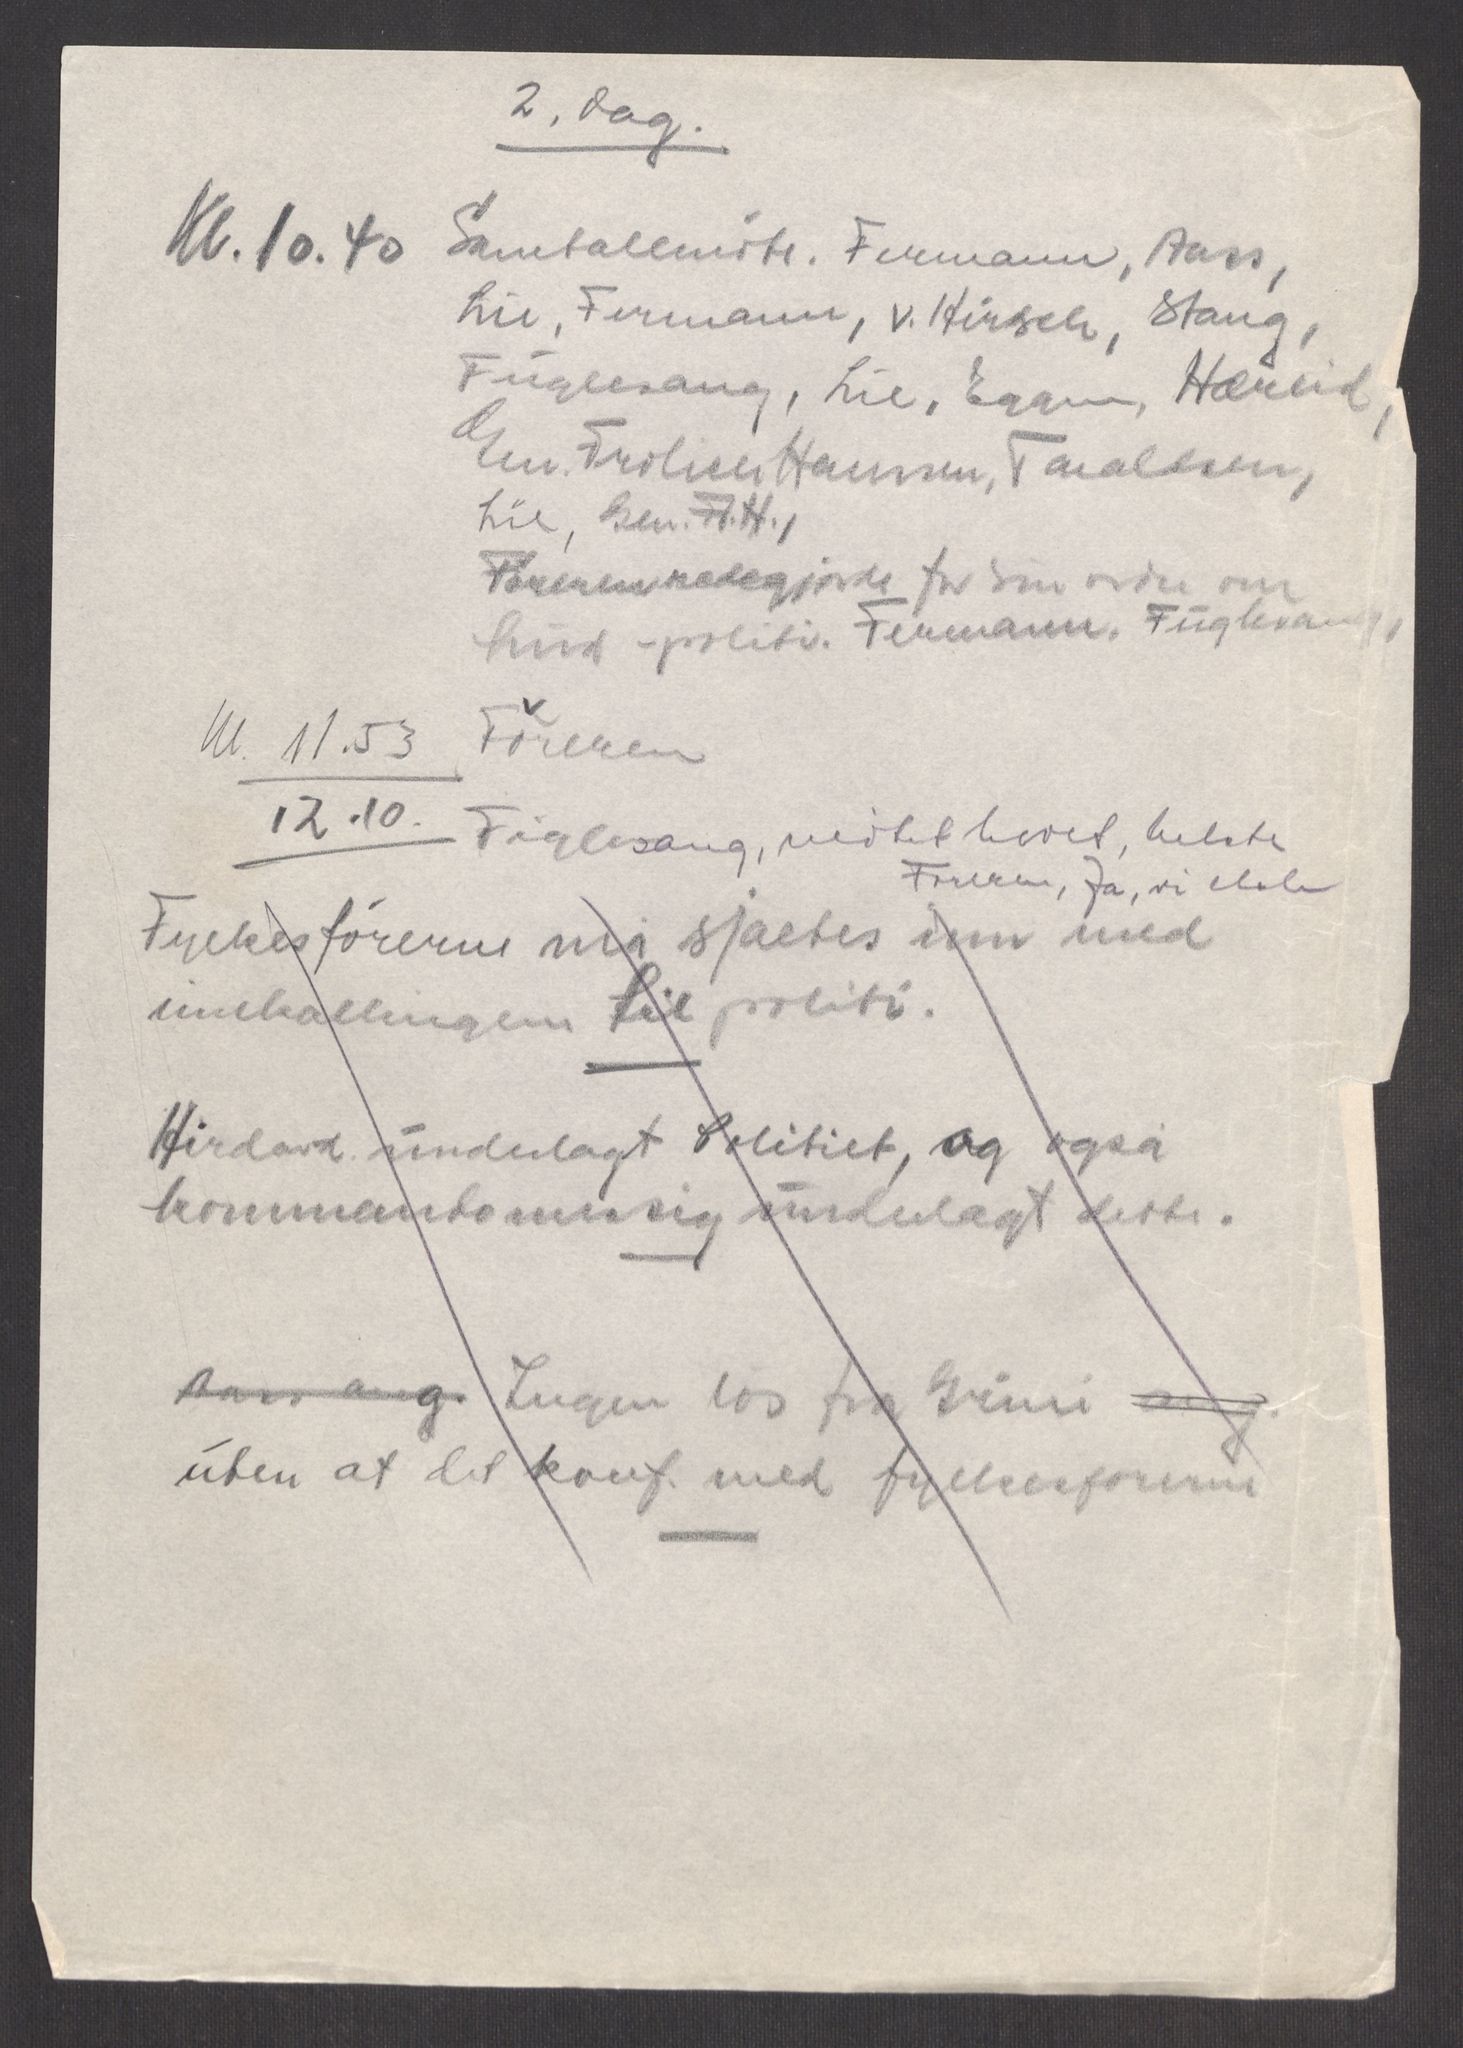 2. dag.
Kl. 10.40 Samtalemöte. Fermann, Aass,
Lie, Fermann, v. Hirsch, Stang,
Fuglesang, Lie, Eggen, Hæreid,
Gen. Frölich Hanssen, Taraldsen,
Lie, Gen. F.H.,
Föreren redegjorde for sin ordre om
hird - politi. Fermann. Fuglesang,
Kl. 11.53 Föreren
12.10. Fuglesang, mötet hevet, hilste
Föreren, Ja, vi elsker
Fylkesförerne må sjaltes inn med
innkallingen til politi.
Hirdavd. underlagt Politiet, og også
kommandomessig underlagt dette.
Aass ang. Ingen lös fra Grini ang.
uten at det konf. med fylkesförerne